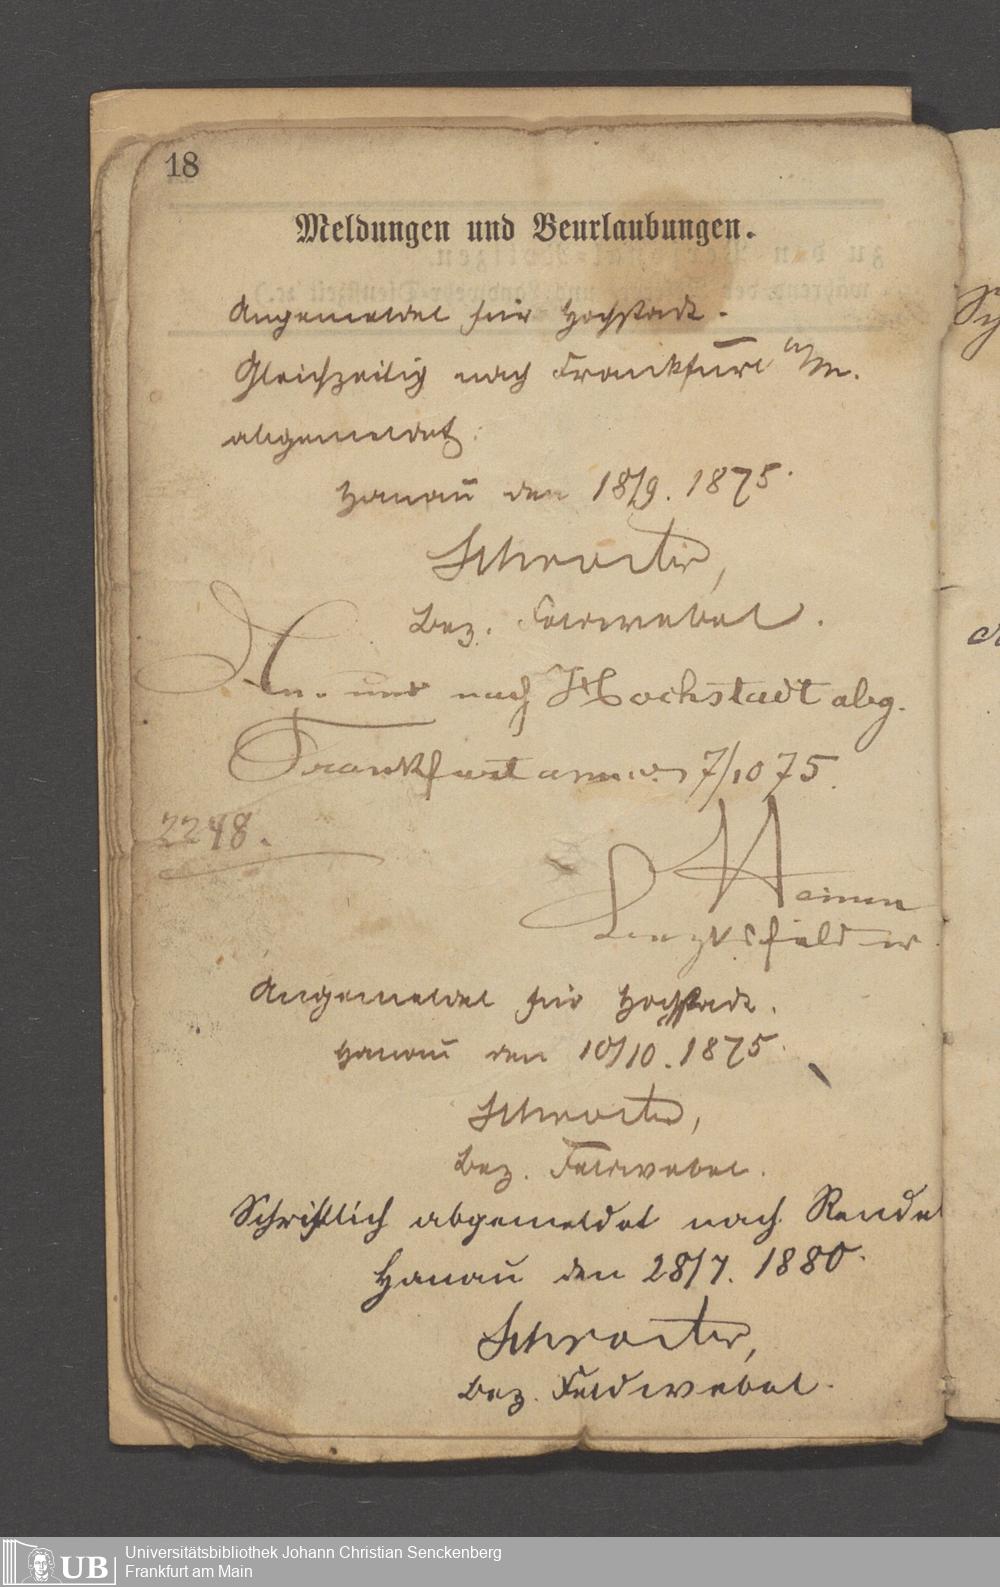 18
Meldungen und Beurlaubungen.
Angemeldet für Hochstadt.
Gleichzeitig nach Frankfurt a/m.
abgemeldet.
Hanau den 18/9. 1875.
Schroeter,
Bez. Feldwebel.
An- und nach Hochstadt abg.
Frankfurt 7/10 75.
2248.
Bezirksfeldw
Angemeldet für Hochstadt.
Hanau den 10/10. 1875.
Schroeter,
Bez. Feldwebel.
Schriftlich abgemeldet nach Rendel
Hanau den 28/7. 1880.
Schroeter,
Bez. Feldwebel.
UB
Universitätsbibliothek Johann Christian Senckenberg
Frankfurt am Main